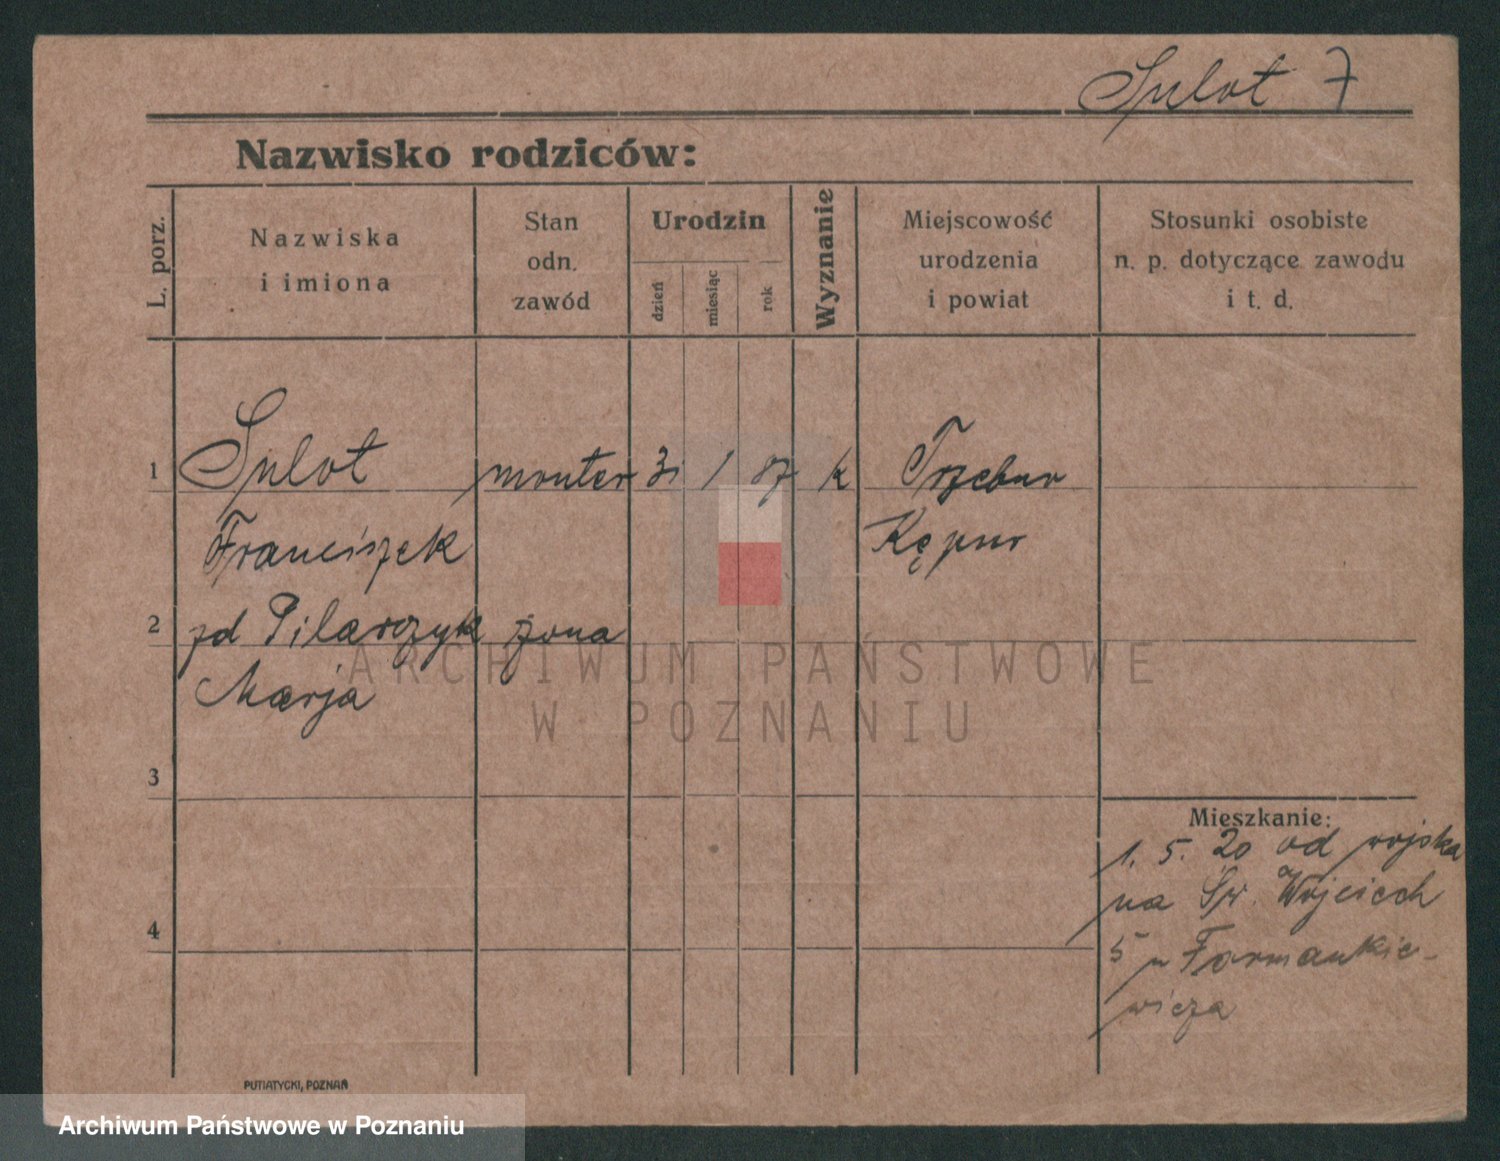 Sulot 7
Nazwisko rodziców:
L. porz.
Nazwiska
i imiona
Stan
odn.
zawód
Urodzin
dzień
miesiąc
rok
Wyznanie
Miejscowość
urodzenia
i powiat
Stosunki osobiste
n. p. dotyczące zawodu
i t. d.
1 Sulot monter 31 1 87 k Trzebuw
Franciszek Kępuw
2 zd Pilarczyk żona
Marja
3
Mieszkanie:
1. 5. 20 od wojska
na Św. Wojciech
4
5 u Formankie-
wicza
PUTIATYCKI, POZNAŃ
ARCHIWUM PAŃSTWOWE
W POZNANIU
Archiwum Państwowe w Poznaniu